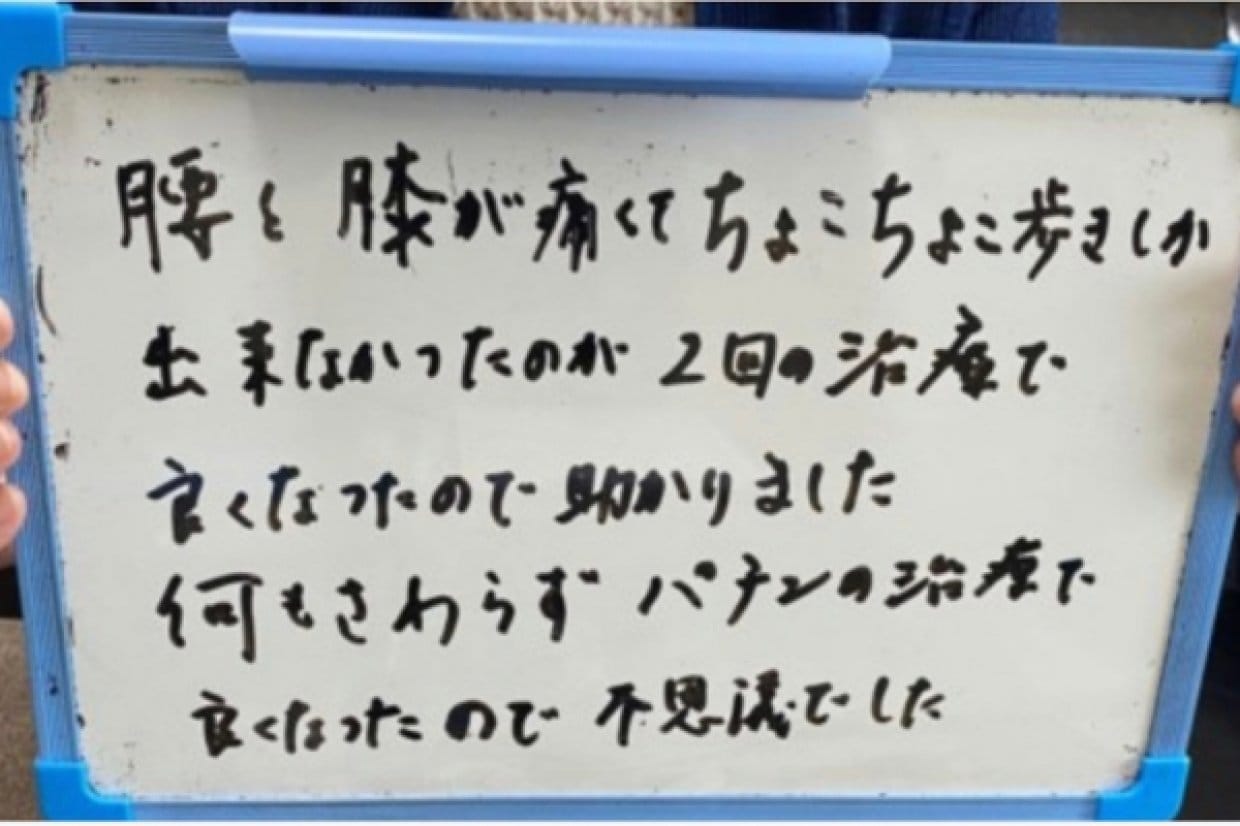 腰と膝が痛くてちょこちょこ歩きしか
出来なかったのが2回の治療で
良くなったので助かりました
何もさわらずパチンの治療で
良くなったので不思議でした